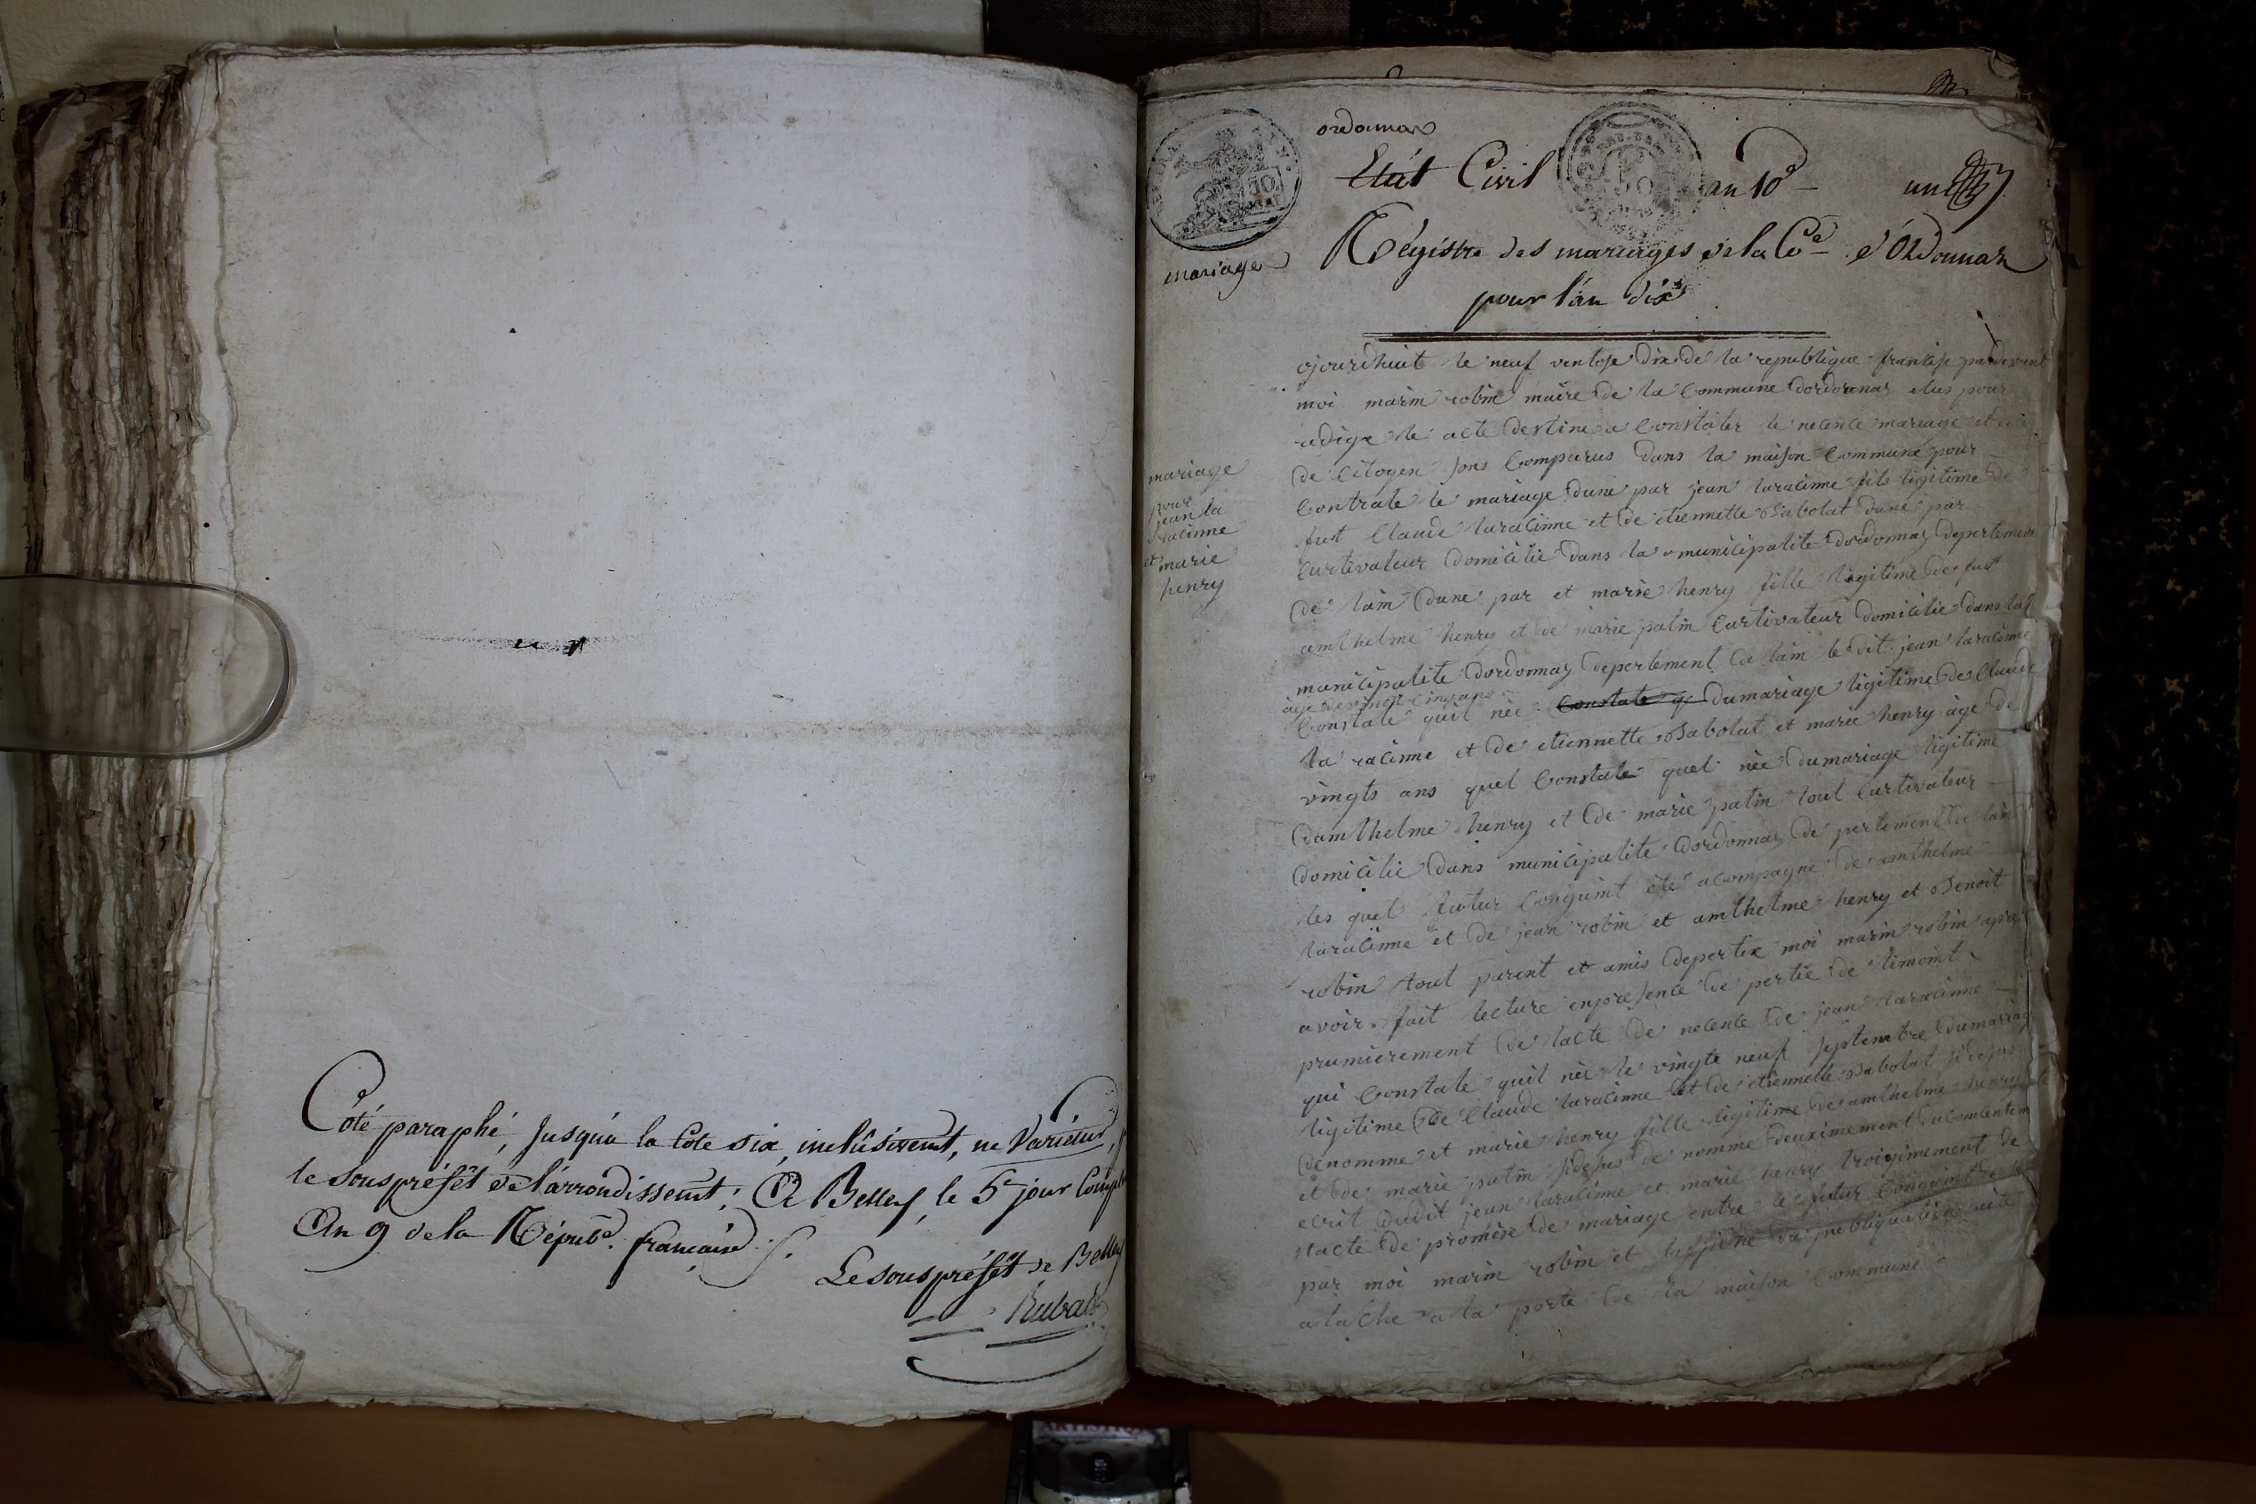 Coté paraphé, jusqu'a la Cote six, inclusivemt, ne Varietur,
le sous préfêt de l'arrondissemt; A Belley, le 5e jour Compl
An 9 de la Répube. française
Le sous préfêt de Belley
Rubat
ordonnas
Etat Civil an 10e une
mariages
Régistre des mariages de la Coe d'Ordonnas
pour l'an dix
mariage
pour
jean la
racinne
et marie
henry
ojourdhuit le neuf ventose dix de la republique francise pardevent
moi marin robin maire de la Commune dordonnas elus pour
redige le acte destine a Constater le necence mariage et
de Citoyen sons Comparus dans la maison Commune pour
Contrate le mariage dune par jean laracinne fils ligitime de
fut Claude laracinne et de etiennette Sabolat dune par
Curtivateur domicilie dans la municipalite dordonnas depertement
de lain dune par et marie henry fille ligitime de fut
amthelme henry et de marie patin Curtivateur domicilie dans la
municipalite dordonnas depertement de lain le dit jean laracinne
age de vingt cinq ans
Constate quil nèe Constate q du mariage ligitime de Claude
la racinne et de etiennette Sabolat et marie henry age de
vingts ans quel Constate quel nèe du mariage ligitime
damthelme henry et de marie patin tout Curtivateur
domicilie dans municipalite dordonnas de pertement de lain
les quel futur Conguint ete acompagne de amthelme
laracinne et de jean robin et amthelme henry et Benoit
robin tout parent et amis depertie moi marin robin apre
avoir fait lecture enpresence de pertie de temoint
prumierement de lacte de necence de jean laracinne
qui Constate quil nèe le vingte neuf septembre dumariag
ligitime de Claude laracinne et de etiennette Sabolat sidesus
denomme et marie henry fille ligitime de amthelme henry
et de marie patin sidesus de nomme deuximement du Consentem
ecrit dudit jean laracinne et marie henry troisimement de
lacte de promese de mariage entre le futur Conguint
par moi marin robin et la publiquation
a la Che a la porte de la maison Commune